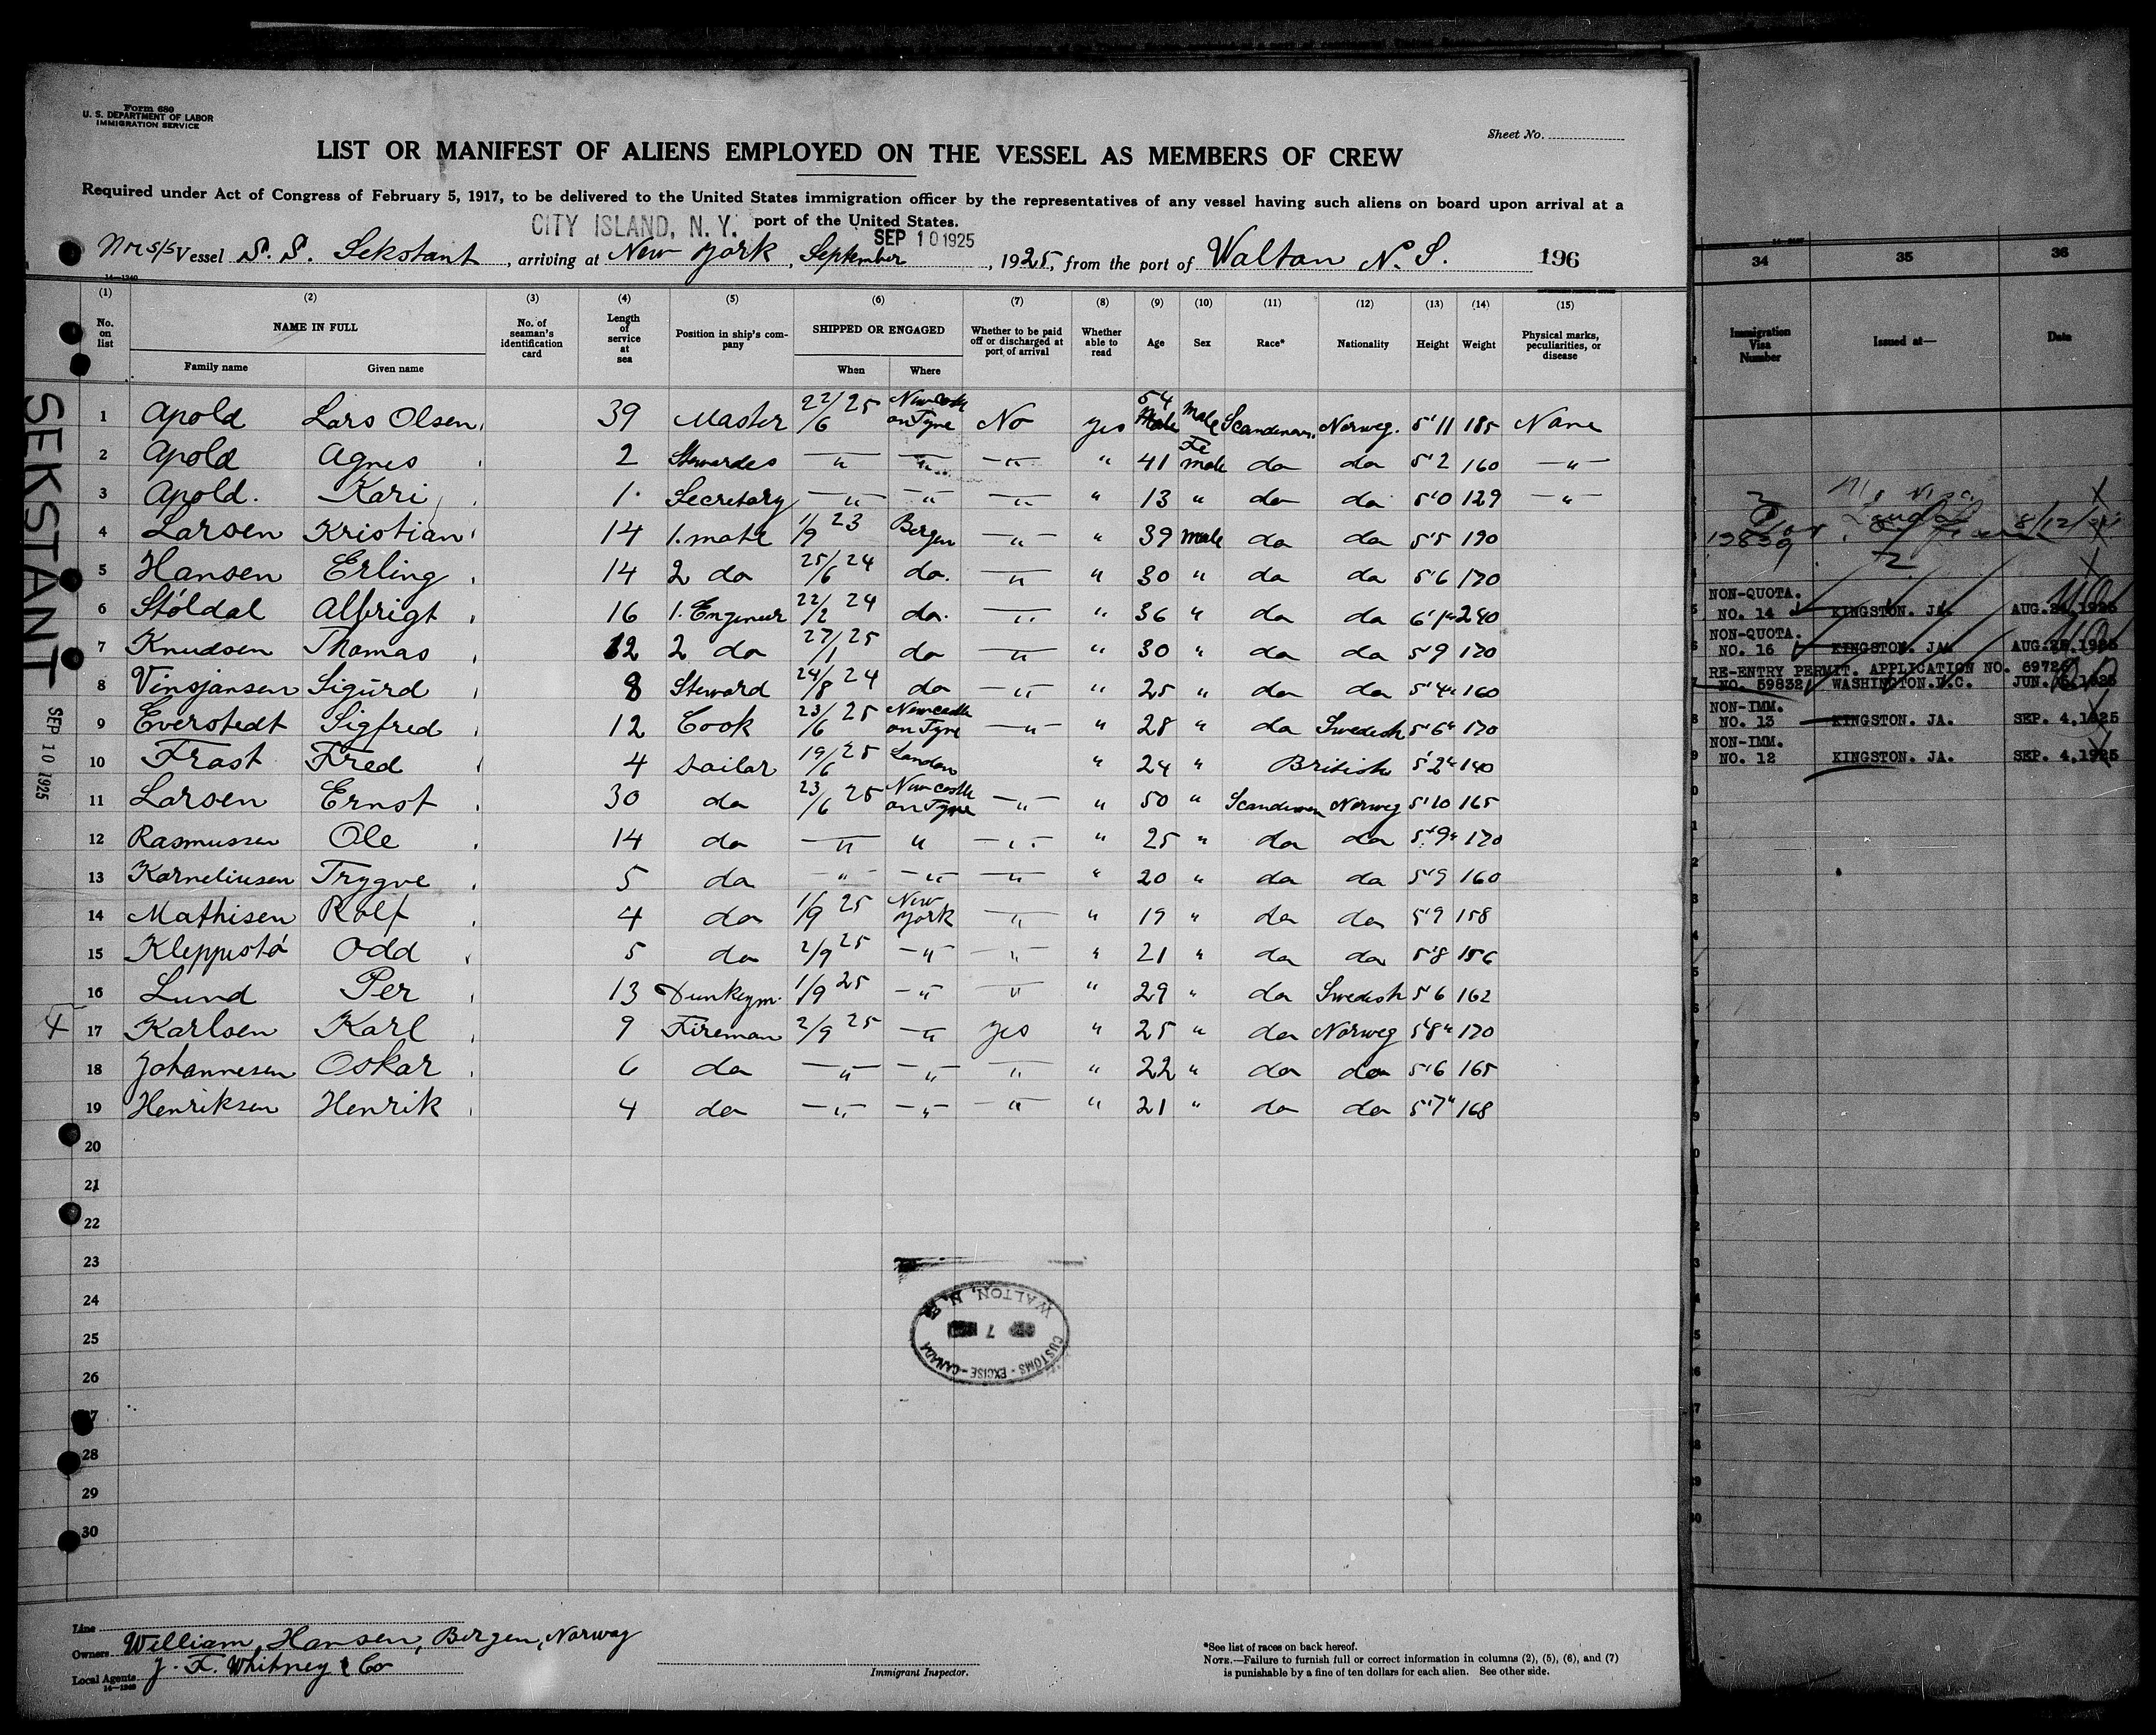 Form 680
U. S. DEPARTMENT OF LABOR
IMMIGRATION SERVICE
Sheet No.
LIST OR MANIFEST OF ALIENS EMPLOYED ON THE VESSEL AS MEMBERS OF CREW
Required under Act of Congress of February 5, 1917, to be delivered to the United States immigration officer by the representatives of any vessel having such aliens on board upon arrival at a
port of the United States.
CITY ISLAND, N. Y.
SEP 10 1925
Vessel S. S. Sekstant, arriving at New York, September, 1925, from the port of Walton N. S. 196
14-1240
(1) (2) (3) (4) (5) (6) (7) (8) (9) (10) (11) (12) (13) (14) (15)
No. on list NAME IN FULL No. of seaman's identification card Length of service at sea Position in ship's company SHIPPED OR ENGAGED Whether to be paid off or discharged at port of arrival Whether able to read Age Sex Race* Nationality Height Weight Physical marks, peculiarities, or disease
Family name Given name When Where
1 Apold Lars Olsen 39 Master 22/6 25 Newcastle on Tyne No yes 54 Male Male Scandinav. Norweg. 5'11 185 None
2 Apold Agnes 2 Stewardes " " " " 41 Female do do 5'2 160 "
3 Apold. Kari 1 Secretary " " " " 13 " do do 5'0 129 "
4 Larsen Kristian 14 1. mate 1/9 23 Bergen " " 39 male do do 5'5 190
5 Hansen Erling 14 2 do 25/6 24 do. " " 30 " do do 5'6 170
6 Stöldal Albrigt 16 1. Engineer 22/2 24 do. " " 36 " do do 6'1" 240
7 Knudsen Thomas 12 2 do 27/1 25 do " " 30 " do do 5'9 170
8 Vinsjansen Sigurd 8 Steward 24/8 24 do " " 25 " do do 5'4" 160
9 Everstedt Sigfred 12 Cook 23/6 25 Newcastle on Tyne " " 28 " do Swedish 5'6" 170
10 Frost Fred 4 Sailor 19/6 25 London " 24 " British 5'2" 140
11 Larsen Ernst 30 do 23/6 25 Newcastle on Tyne " " 50 " Scandinav Norweg 5'10 165
12 Rasmussen Ole 14 do " " " " 25 " do do 5'9" 170
13 Korneliusen Trygve 5 do " " " " 20 " do do 5'9 160
14 Mathisen Rolf 4 do 1/9 25 New York " " 19 " do do 5'9 158
15 Kleppestö Odd 5 do 2/9 25 " " " 21 " do do 5'8 156
16 Lund Per 13 Dunkeym. 1/9 25 " " " 29 " do Swedish 5'6 162
17 Karlsen Karl 9 Fireman 2/9 25 " yes " 25 " do Norweg 5'8" 170
18 Johannesen Oskar 6 do " " " " 22 " do do 5'6 165
19 Henriksen Henrik 4 do " " " " 21 " do do 5'7" 168
20
21
22
23
24
25
26
27
28
29
30
SEKSTANT
SEP 10 1925
WALTON, N.S.
SEP 7
CUSTOMS - EXCISE - CANADA
Line
Owners William Hansen, Bergen, Norway
Local Agents J. F. Whitney & Co
14-1240
Immigrant Inspector.
*See list of races on back hereof.
NOTE.—Failure to furnish full or correct information in columns (2), (5), (6), and (7)
is punishable by a fine of ten dollars for each alien. See other side.
34 35 36
Immigration Visa Number Issued at— Date
NON-QUOTA.
NO. 14 KINGSTON. JA. AUG. 1925
NON-QUOTA.
NO. 16 KINGSTON. JA. AUG. 25, 1925
RE-ENTRY PERMIT. APPLICATION NO. 69726
NO. 59832 WASHINGTON.D.C. JUN. 1925
NON-IMM.
NO. 13 KINGSTON. JA. SEP. 4, 1925
NON-IMM.
NO. 12 KINGSTON. JA. SEP. 4, 1925